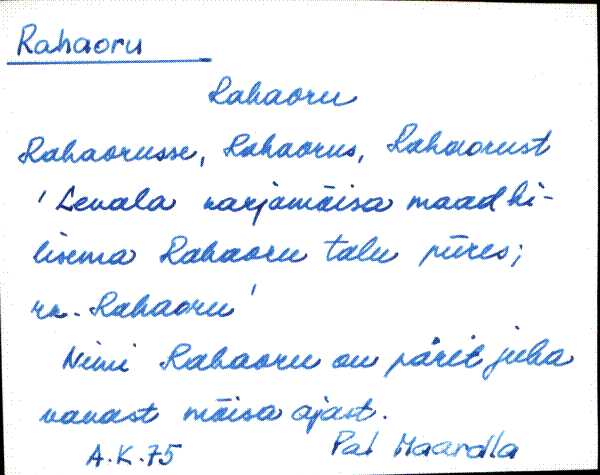 Rahaoru
Rahaoru
Rahaorusse, Rahaorus, Rahaorust
'Levala karjamõisa maad hi-
lisema Rahaoru talu piires;
rk. Rahaoru'
Nimi Rahaoru on pärit juba
vanast mõisa ajast.
A.K.75 Pal Maardla